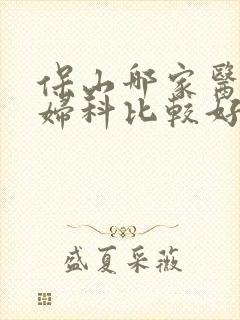 保山那家醫
婦科比較好
盛夏采薇